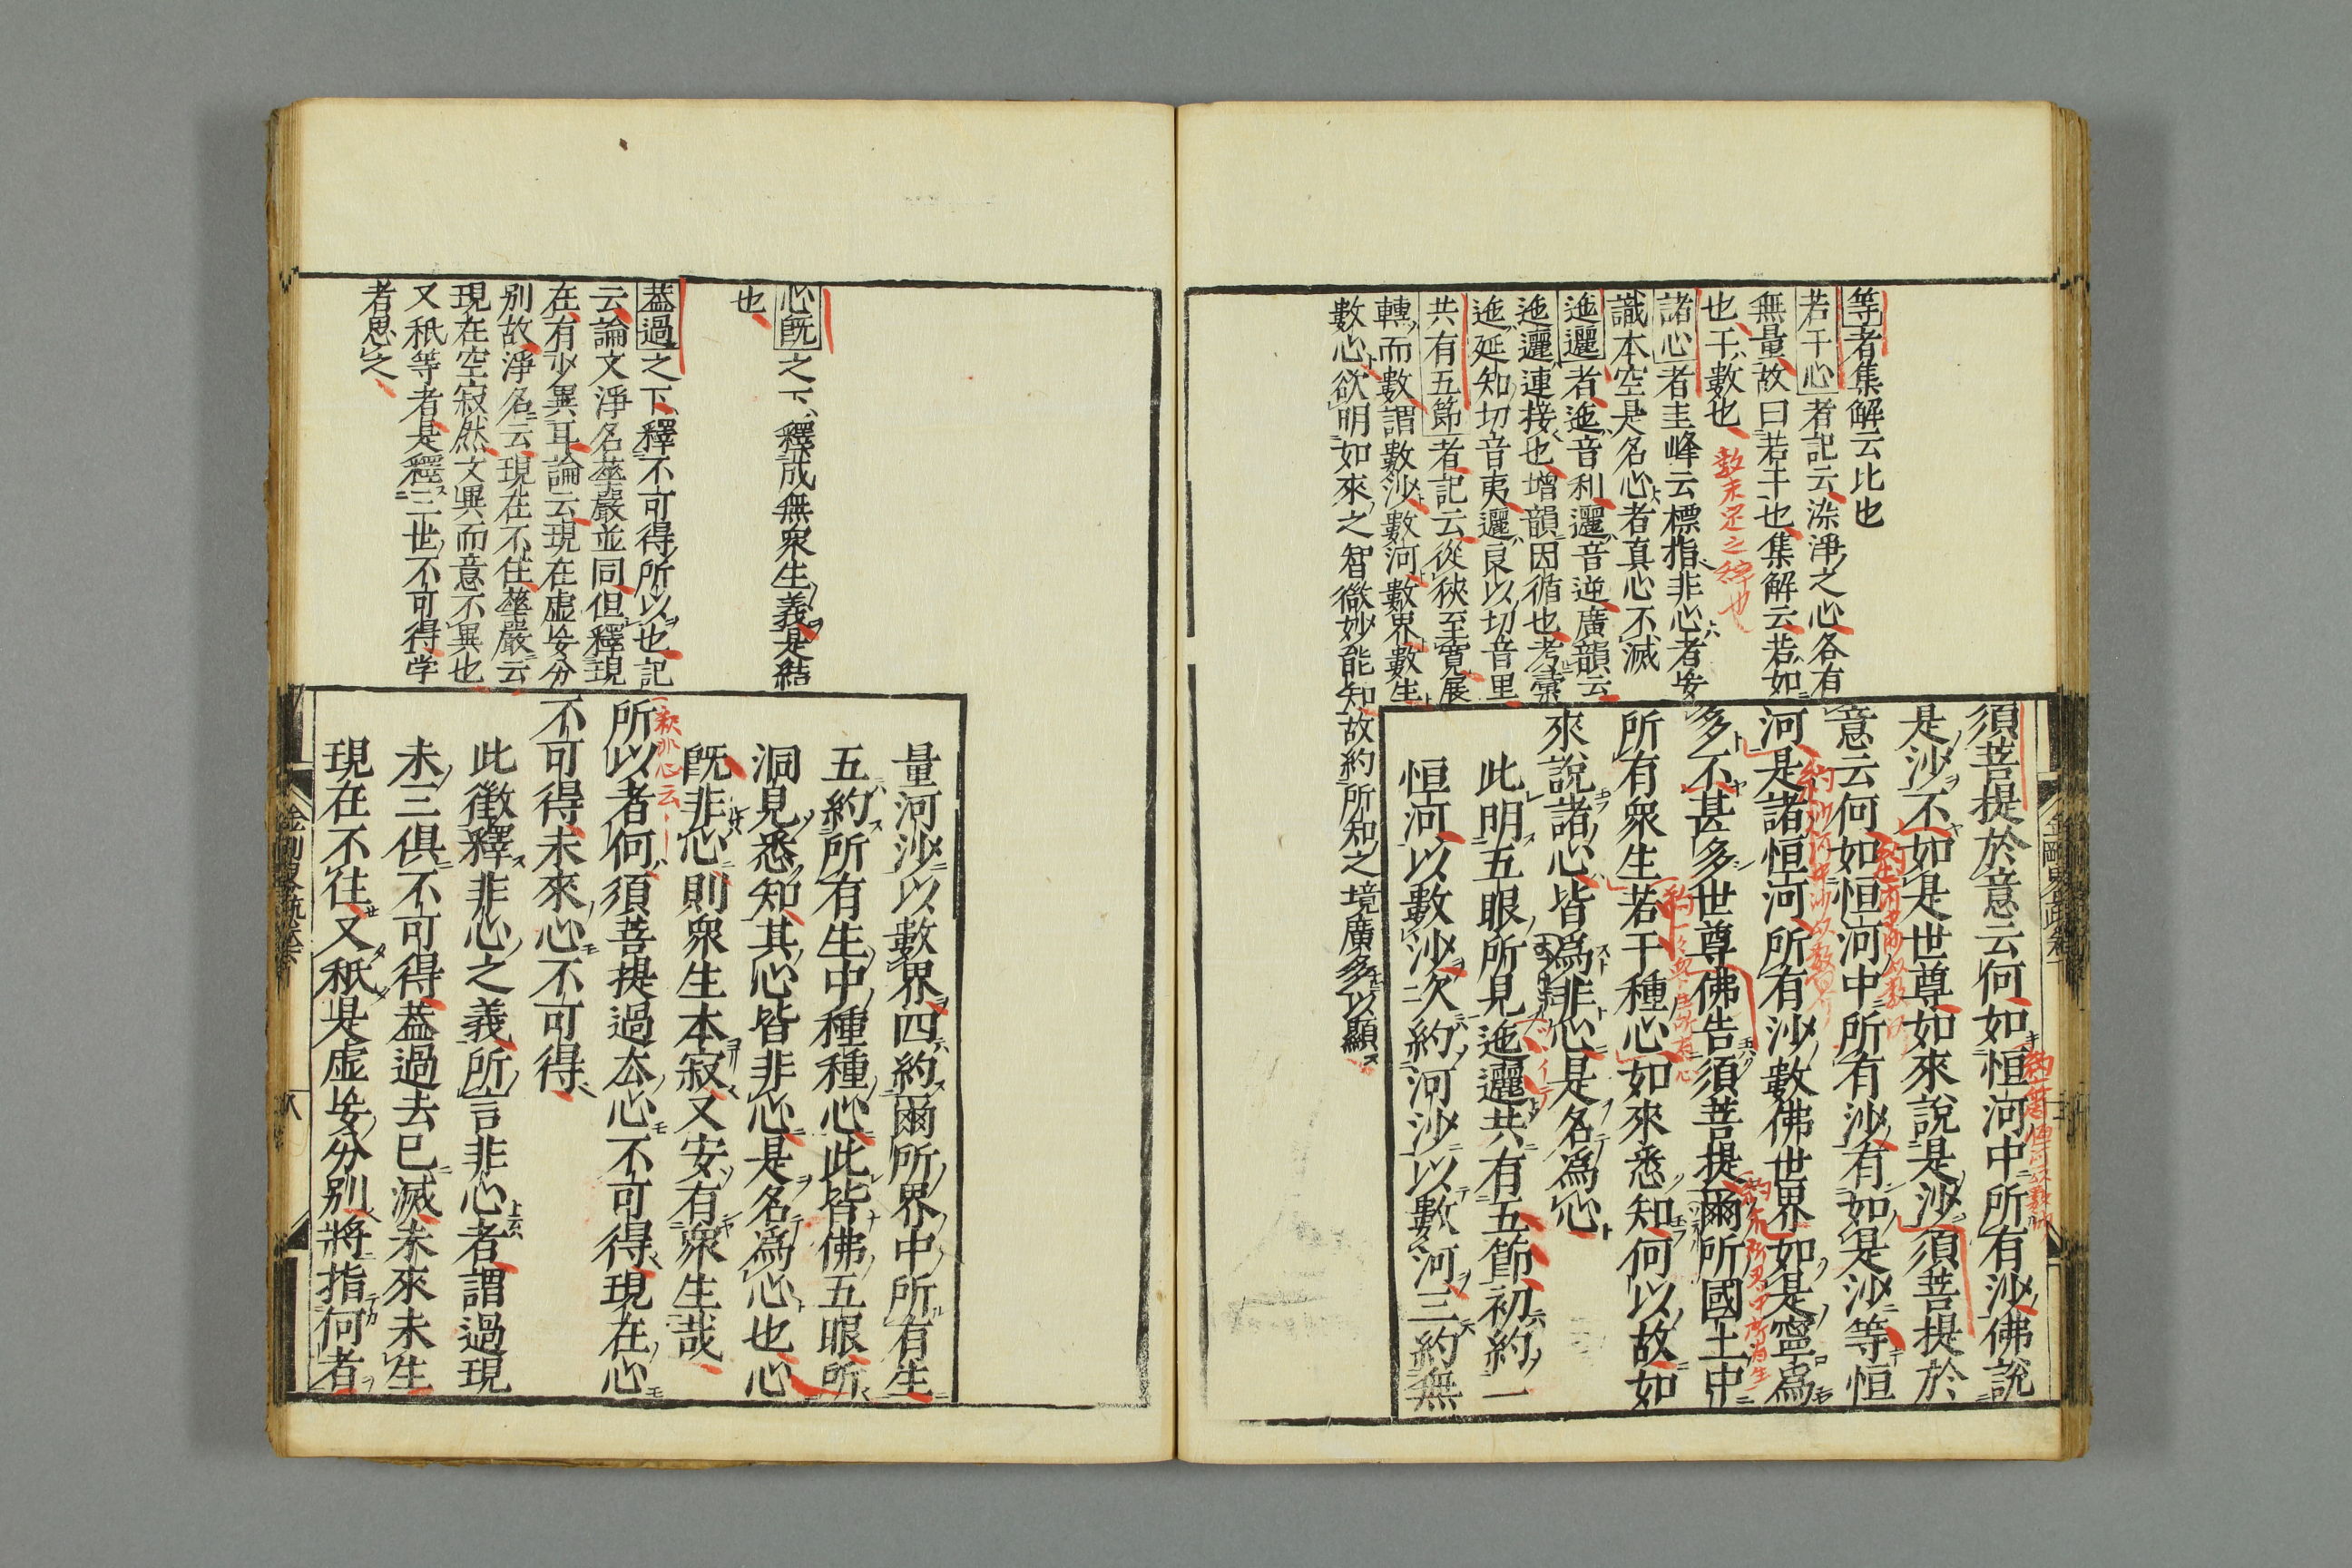 須菩提於意云何如恒河中所有沙佛說
是沙不如是世尊如來說是沙須菩提於
意云何如恒河中所有沙有如是沙等恒
河是諸恒河所有沙數佛世界如是寧爲
多不甚多世尊佛告須菩提爾所國土中
所有衆生若干種心如來悉知何以故如
來說諸心皆爲非心是名爲心
此明五眼所見迤邐共有五節初約一
恒河以數沙次約河沙以數河三約無
等者集解云比也
若干心者記云染淨之心各有
無量故曰若干也集解云若如
也干數也
諸心者圭峰云標指非心者妄
識本空是名心者真心不滅
迤邐者迤音利邐音逆廣韻云
迤邐連接也增韻因循也考彙
迤延知切音夷邐良以切音里
共有五節者記云從狹至寬展
轉而數謂數沙數河數界數生
數心欲明如來之智微妙能知故約所知之境廣多以顯
量河沙以數界四約爾所界中所有生
五約所有生中種種心此皆佛五眼所
洞見悉知其心皆非心是名爲心也心
既非心則衆生本寂又安有衆生哉
所以者何須菩提過去心不可得現在心
不可得未來心不可得
此徵釋非心之義所言非心者謂過現
未三俱不可得蓋過去已滅未來未生
現在不住又秖是虛妄分別將指何者
心既之下釋成無衆生義是結
也
蓋過之下釋不可得所以也記
云論文淨名華嚴並同但釋現
在有少異耳論云現在虛妄分
別故淨名云現在不住華嚴云
現在空寂然文異而意不異也
又秖等者是釋三世不可得学
者思之
八